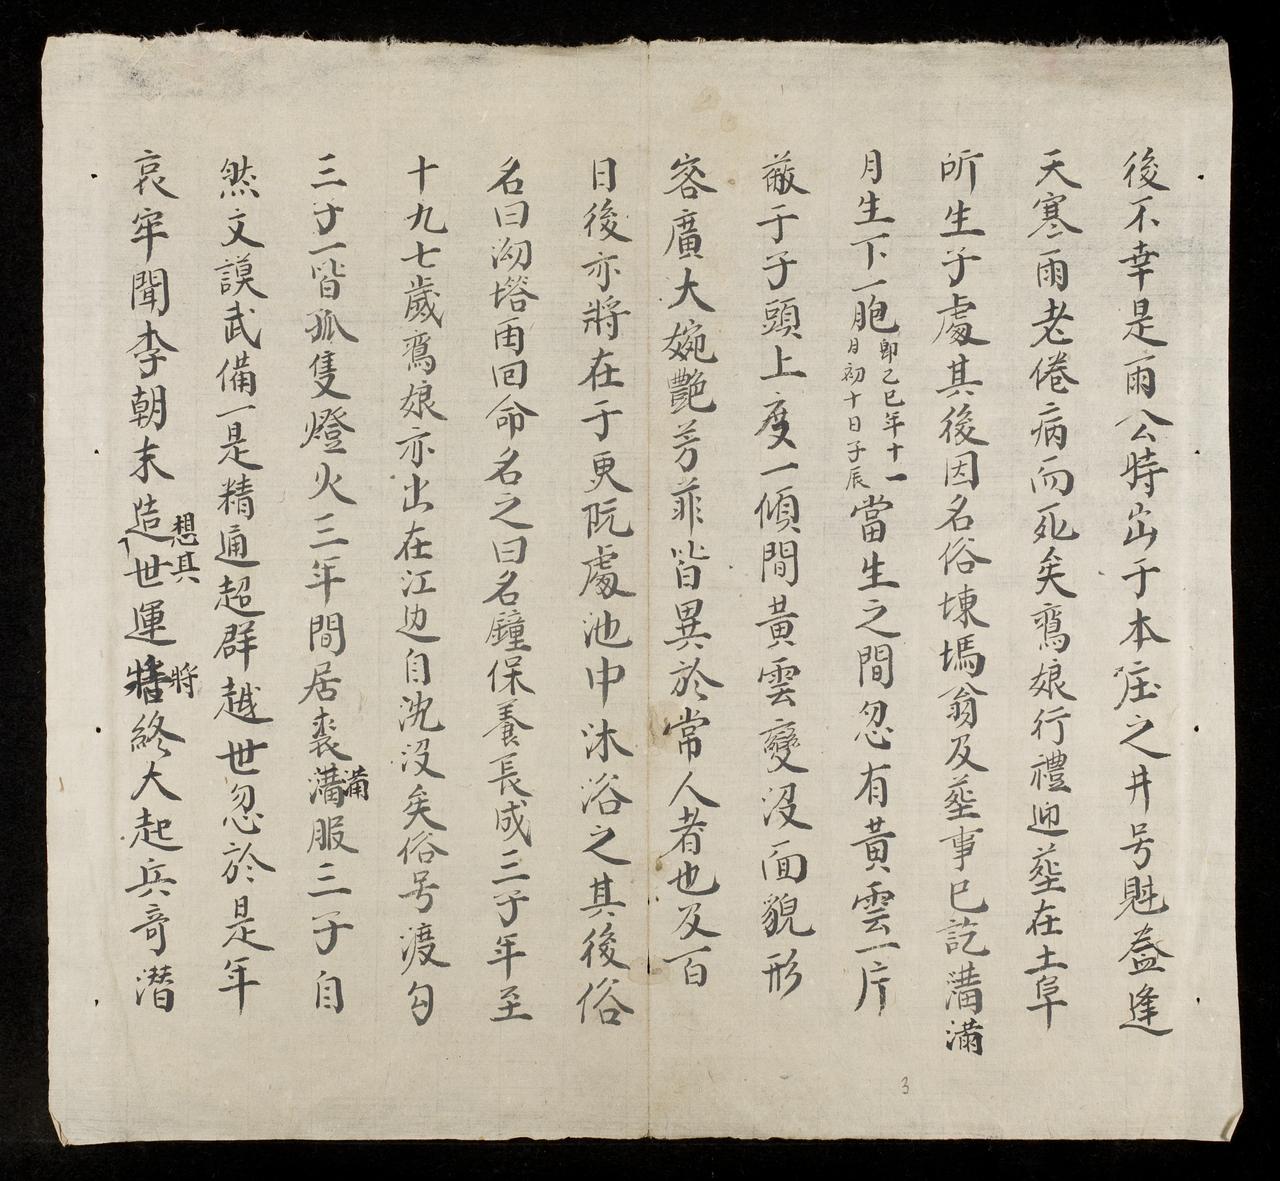 後不幸是雨公時出于本庄之井号䰟益逢
天寒雨老倦病而死矣鸞娘行禮迎塟在土阜
所生子處其後因名俗堜塢翁及塟事已訖溝滿
月生下一胞即乙巳年十一月初十日子辰當生之間忽有黃雲一片
蔽于子頭上度一傾間黃雲變没面貌形
容廣大婉艷芳菲皆異於常人者也及百
日後亦將在于更阮處池中沐浴之其後俗
名曰沕塔甬回命名之曰名鐘保養長成三子年至
十九七歲鸞娘亦出在江边自沈没矣俗号渡勾
三子一皆孤隻燈火三年間居丧溝滿服三子自
然文謨武備一是精通超群越世忽於是年
哀牢聞李朝末造想其世運將終大起兵哥潜
3